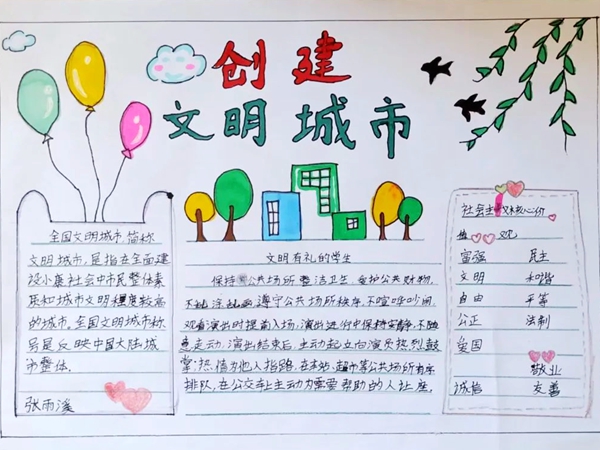 创建
文明城市
全国文明城市,简称
文明城市,是指在全面建
设小康社会中市民整体素
质和城市文明程度较高
的城市。全国文明城市称
号是反映中国大陆城
市整体。
张雨溪
文明有礼的学生
保持公共场所整洁卫生,爱护公共财物,
不乱涂乱画遵守公共场所秩序,不喧哗吵闹,
观看演出时提前入场,演出进行中保持安静,不随
意走动,演出结束后,主动起立向演员热烈鼓
掌;热情为他人指路,在车站、超市等公共场所有序
排队,在公交车上主动为需要帮助的人让座。
社会主义核心价
值观
富强 民主
文明 和谐
自由 平等
公正 法制
爱国
敬业
诚信 友善